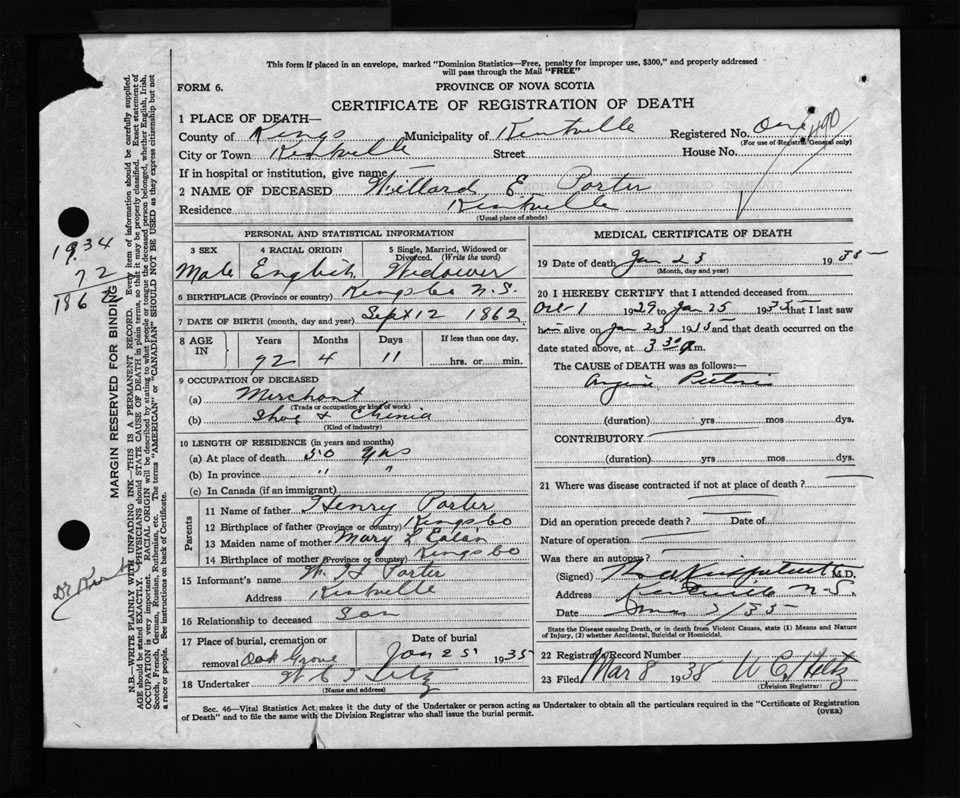 This form if placed in an envelope, marked "Dominion Statistics—Free, penalty for improper use, $300," and properly addressed
will pass through the Mail "FREE"
FORM 6.
PROVINCE OF NOVA SCOTIA
CERTIFICATE OF REGISTRATION OF DEATH
1 PLACE OF DEATH—
County of Kings Municipality of Kentville Registered No. One
(For use of Registrar General only)
City or Town Kentville Street House No.
If in hospital or institution, give name
2 NAME OF DECEASED Willard E. Porter
Residence Kentville
(Usual place of abode)
PERSONAL AND STATISTICAL INFORMATION
3 SEX 4 RACIAL ORIGIN 5 Single, Married, Widowed or Divorced. (Write the word)
Male English Widower
6 BIRTHPLACE (Province or country) Kings Co N.S.
7 DATE OF BIRTH (month, day and year) Sept 12 1862
8 AGE IN Years Months Days If less than one day,
72 4 11 hrs. or min.
9 OCCUPATION OF DECEASED
(a) Merchant
(Trade or occupation or kind of work)
(b) Shoe & China
(Kind of industry)
10 LENGTH OF RESIDENCE (in years and months)
(a) At place of death 50 yrs
(b) In province " "
(c) In Canada (if an immigrant)
Parents
11 Name of father Henry Porter
12 Birthplace of father (Province or country) Kings Co
13 Maiden name of mother Mary L Eaton
14 Birthplace of mother (Province or country) Kings Co
15 Informant's name Porter
Address Kentville
16 Relationship to deceased Son
17 Place of burial, cremation or removal Oak Grove
Date of burial Jan 25 1935
18 Undertaker
(Name and address)
MEDICAL CERTIFICATE OF DEATH
19 Date of death Jan 23 1935
(Month, day and year)
20 I HEREBY CERTIFY that I attended deceased from
Oct 1 1929 to Jan 25 1935 that I last saw
him alive on Jan 23 1935 and that death occurred on
date stated above, at 3 30 a m.
The CAUSE OF DEATH was as follows:—
Angina Pectoris
(duration) yrs mos dys.
CONTRIBUTORY
(duration) yrs mos dys.
21 Where was disease contracted if not at place of death?
Did an operation precede death? Date of
Nature of operation
Was there an autopsy?
(Signed) M.D.
Address Kentville N.S.
Date
State the Disease causing Death, or in death from Violent Causes, state (1) Means and Nature
of Injury, (2) whether Accidental, Suicidal or Homicidal.
22 Registrar's Record Number
23 Filed Mar 8 1938
(Division Registrar)
Sec. 46—Vital Statistics Act makes it the duty of the Undertaker or person acting as Undertaker to obtain all the particulars required in the "Certificate of Registration
of Death" and to file the same with the Division Registrar who shall issue the burial permit.
(OVER)
1934
72
1862
MARGIN RESERVED FOR BINDING
N.B.—WRITE PLAINLY WITH UNFADING INK—THIS IS A PERMANENT RECORD. Every item of information should be carefully supplied.
AGE should be stated EXACTLY. PHYSICIANS should STATE CAUSE OF DEATH in plain terms, so that it may be properly classified. Exact statement of
OCCUPATION is very important. RACIAL ORIGIN will be described by stating to what people or tongue the deceased person belonged, whether English, Irish,
Scotch, French, German, Russian, Ruthenian, etc. The terms "AMERICAN" or "CANADIAN" SHOULD NOT BE USED as they express citizenship but not
a race or people. See instructions on back of Certificate.